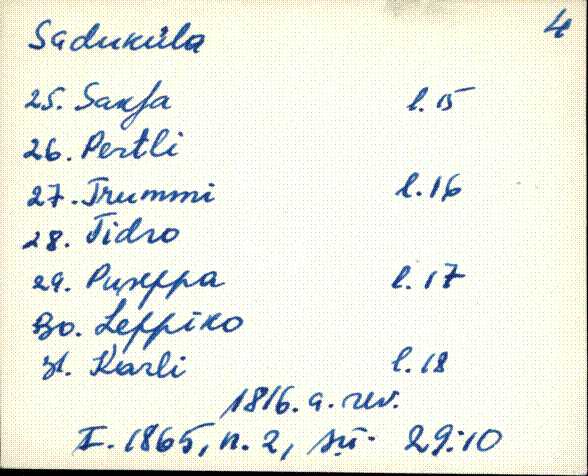 4
Saduküla
25. Saxfa l. 15
26. Pertli
27. Trummi l. 16
28. Tidro
29. Puseppa l. 17
30. Leppiko
31. Karli l. 18
1816. a. rev.
I. 1865, n. 2, sü. 29:10